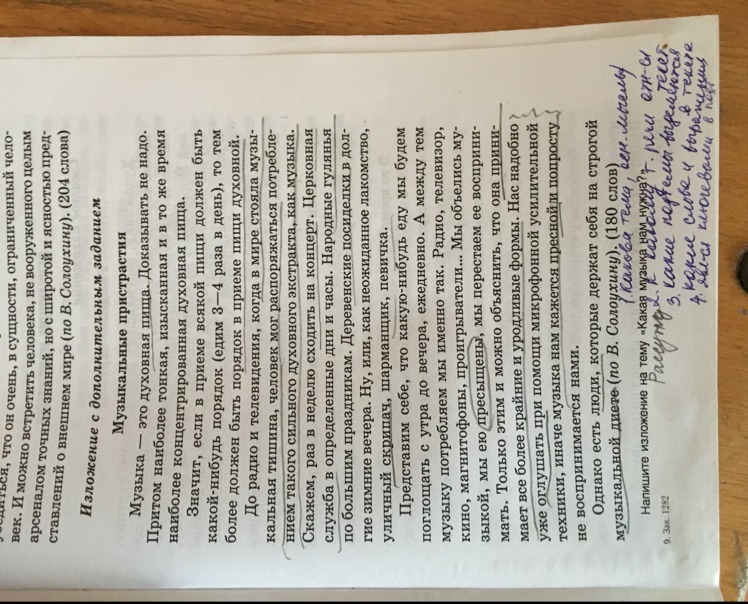 убедиться, что он очень, в сущности, ограниченный чело-
век. И можно встретить человека, не вооруженного целым
арсеналом точных знаний, но с широтой и ясностью пред-
ставлений о внешнем мире (по В. Солоухину). (204 слова)
Изложение с дополнительным заданием
Музыкальные пристрастия
Музыка — это духовная пища. Доказывать не надо.
Притом наиболее тонкая, изысканная и в то же время
наиболее концентрированная духовная пища.
Значит, если в приеме всякой пищи должен быть
какой-нибудь порядок (едим 3—4 раза в день), то тем
более должен быть порядок в приеме пищи духовной.
До радио и телевидения, когда в мире стояла музы-
кальная тишина, человек мог распоряжаться потребле-
нием такого сильного духовного экстракта, как музыка.
Скажем, раз в неделю сходить на концерт. Церковная
служба в определенные дни и часы. Народные гулянья
по большим праздникам. Деревенские посиделки в дол-
гие зимние вечера. Ну, или, как неожиданное лакомство,
уличный скрипач, шарманщик, певичка.
Представим себе, что какую-нибудь еду мы будем
поглощать с утра до вечера, ежедневно. А между тем
музыку потребляем мы именно так. Радио, телевизор,
кино, магнитофоны, проигрыватели... Мы объелись му-
зыкой, мы ею пресыщены, мы перестаем ее восприни-
мать. Только этим и можно объяснить, что она прини-
мает все более крайние и уродливые формы. Нас надобно
уже оглушать при помощи микрофонной усилительной
техники, иначе музыка нам кажется пресной и попросту
не воспринимается нами.
Однако есть люди, которые держат себя на строгой
музыкальной диете (по В. Солоухину). (180 слов)
Напишите изложение на тему «Какая музыка нам нужна?».
1. Какова тема, осн. мысль
2. К какому т. речи отн-ся текст
3. какие подтемы выделяются
4. какие слова и выражения в тексте
явл-ся ключевыми
9. Зак. 1282